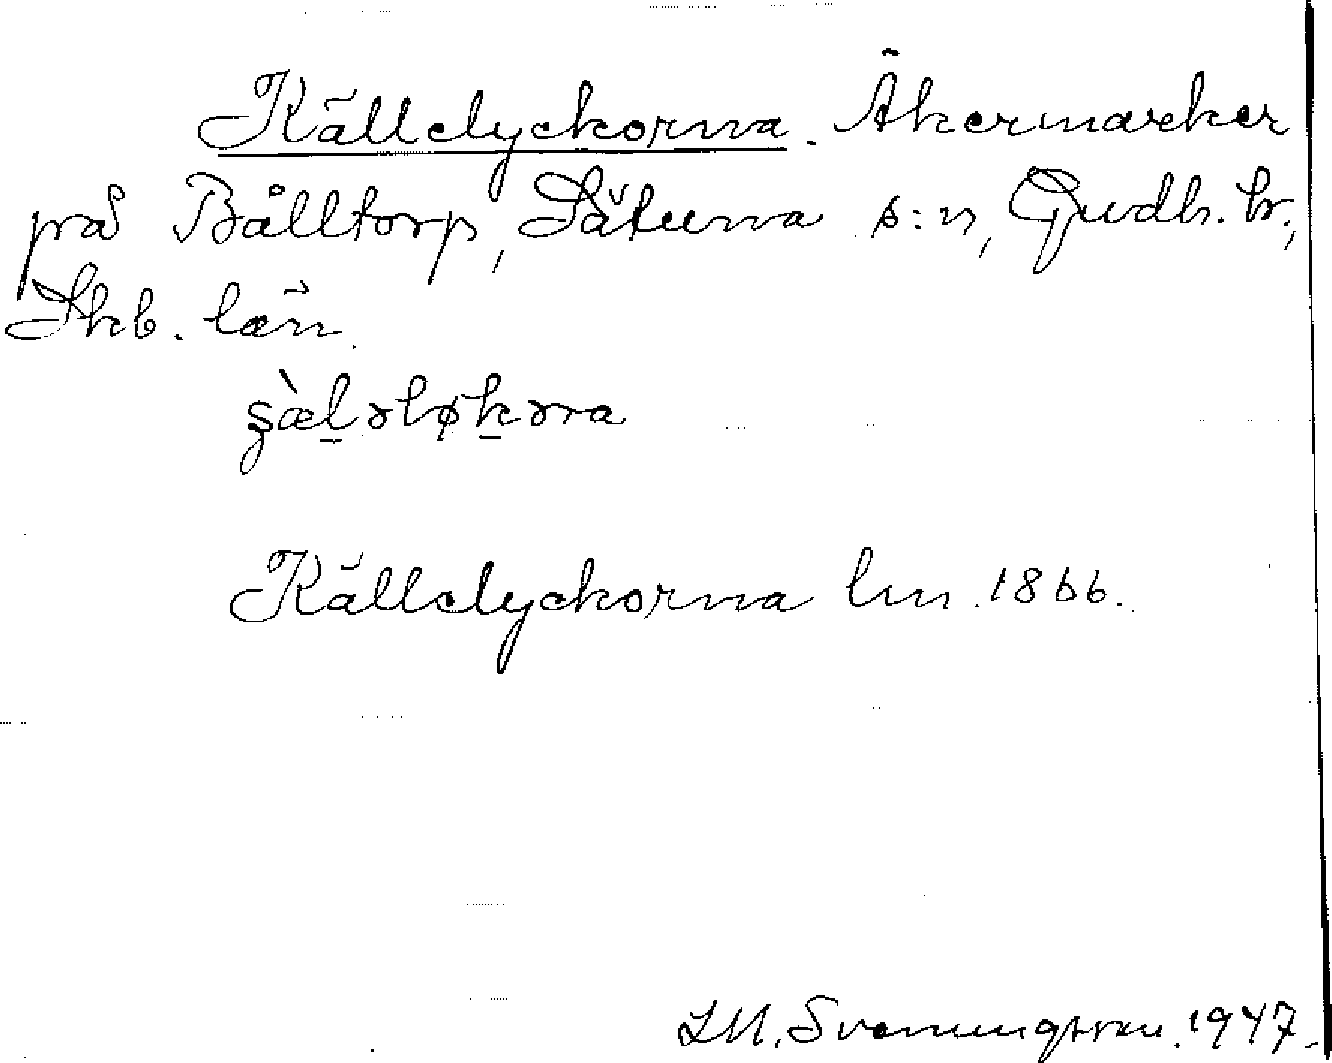 Källelyckorna. Åkermarker
på Bålltorp, Sätuna s:n, Gudh. hr,
Skb. län.
Källelyckorna lm. 1866.
LM. Svenungsson. 1947.